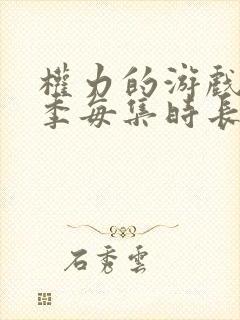 權力的游戲
季每集時長
石秀雲